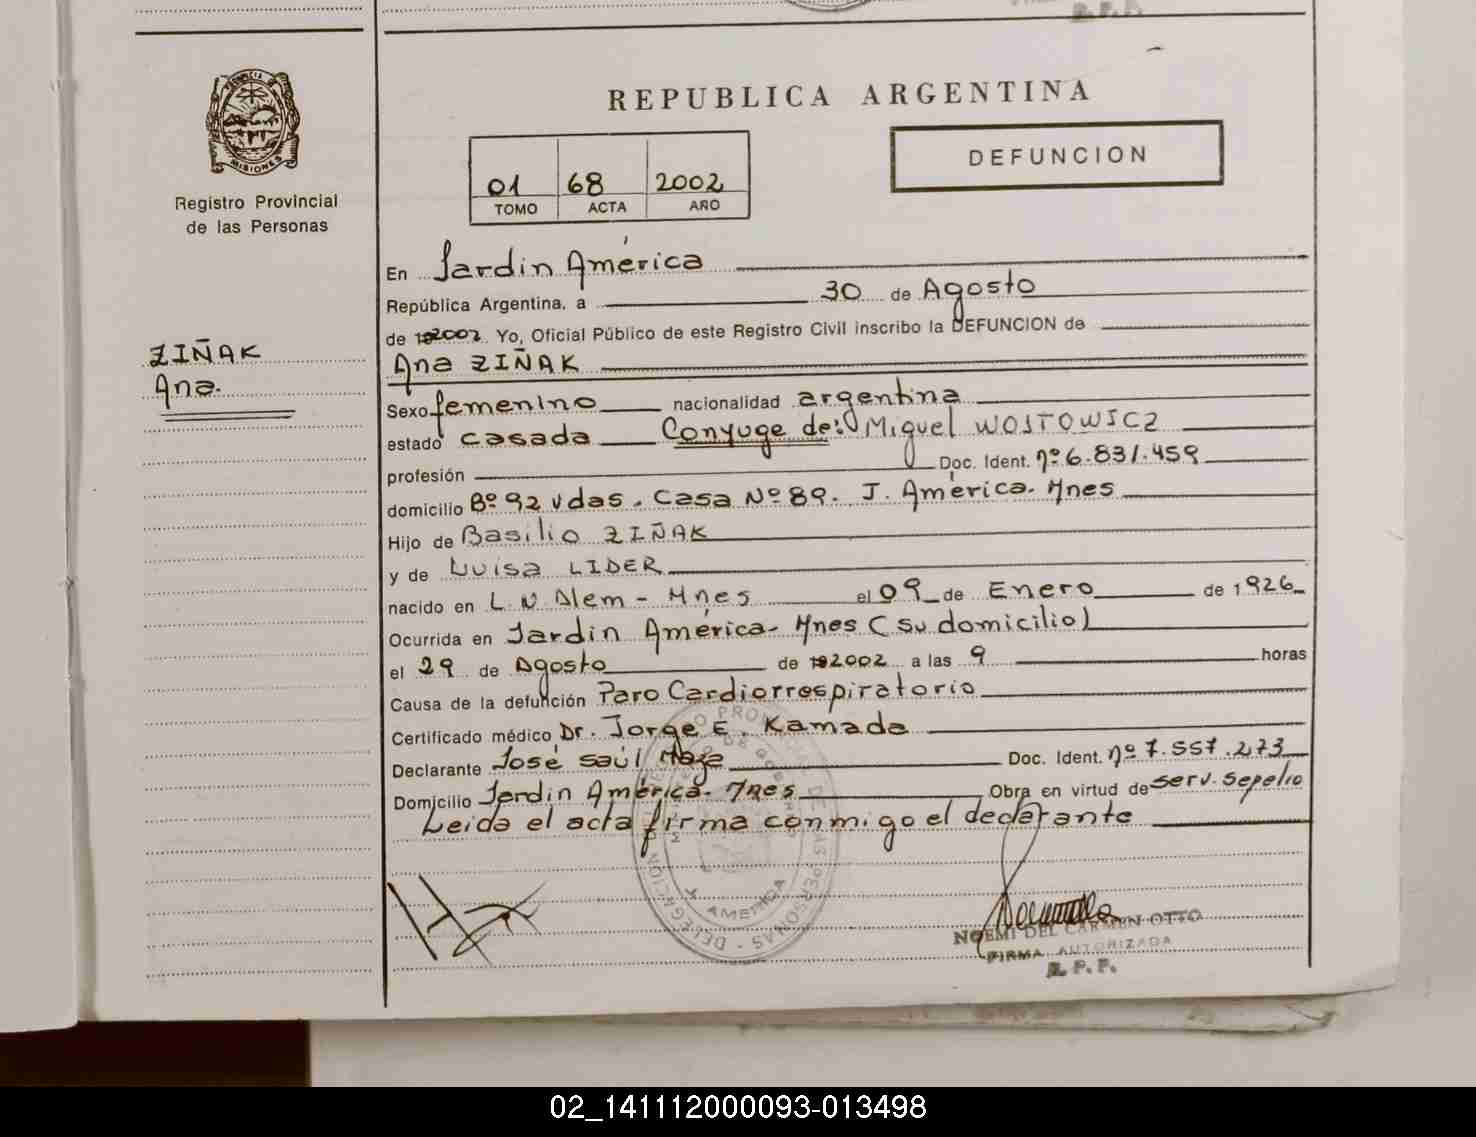 R.P.P.
PROVINCIA DE
MISIONES
Registro Provincial
de las Personas
ZIÑAK
Ana.
REPUBLICA ARGENTINA
01 68 2002
TOMO ACTA AÑO
DEFUNCION
En Jardin América
República Argentina, a 30 de Agosto
de 2002 Yo, Oficial Público de este Registro Civil inscribo la DEFUNCION de
Ana ZIÑAK
Sexo femenino nacionalidad argentina
estado casada Conyuge de: Miguel WOSTOWICZ
profesión Doc. Ident. nº 6.831.459
domicilio Bº 92 Vdas. Casa Nº 89. J. América. Mnes
Hijo de Basilio ZIÑAK
y de Luisa LIDER
nacido en L. N Alem - Mnes el 09 de Enero de 1926
Ocurrida en Jardin América- Mnes (su domicilio)
el 29 de Agosto de 2002 a las 9 horas
Causa de la defunción Paro Cardiorrespiratorio
Certificado médico Dr. Jorge E. Kamada
Declarante José Saúl Doc. Ident. nº 7.557.273
Domicilio Jardin América- Mnes Obra en virtud de serv. sepelio
Leida el acta firma conmigo el declarante
NOEMI DEL CARMEN OTTO
FIRMA AUTORIZADA
R.P.P.
02_141112000093-013498